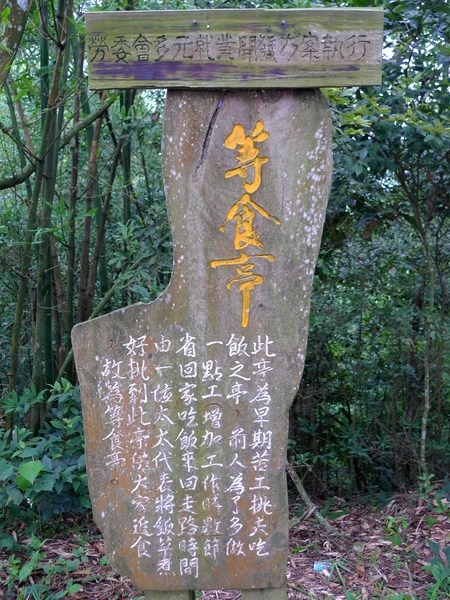 勞委會多元就業開發方案執行
等食亭
此亭為早期苦工挑夫吃
飯之亭 前人為了多做
一點工(增加工作時數節
省回家吃飯來回走路時間
由一位太太代表將飯菜煮
好挑到此亭供大家進食
故為等食亭